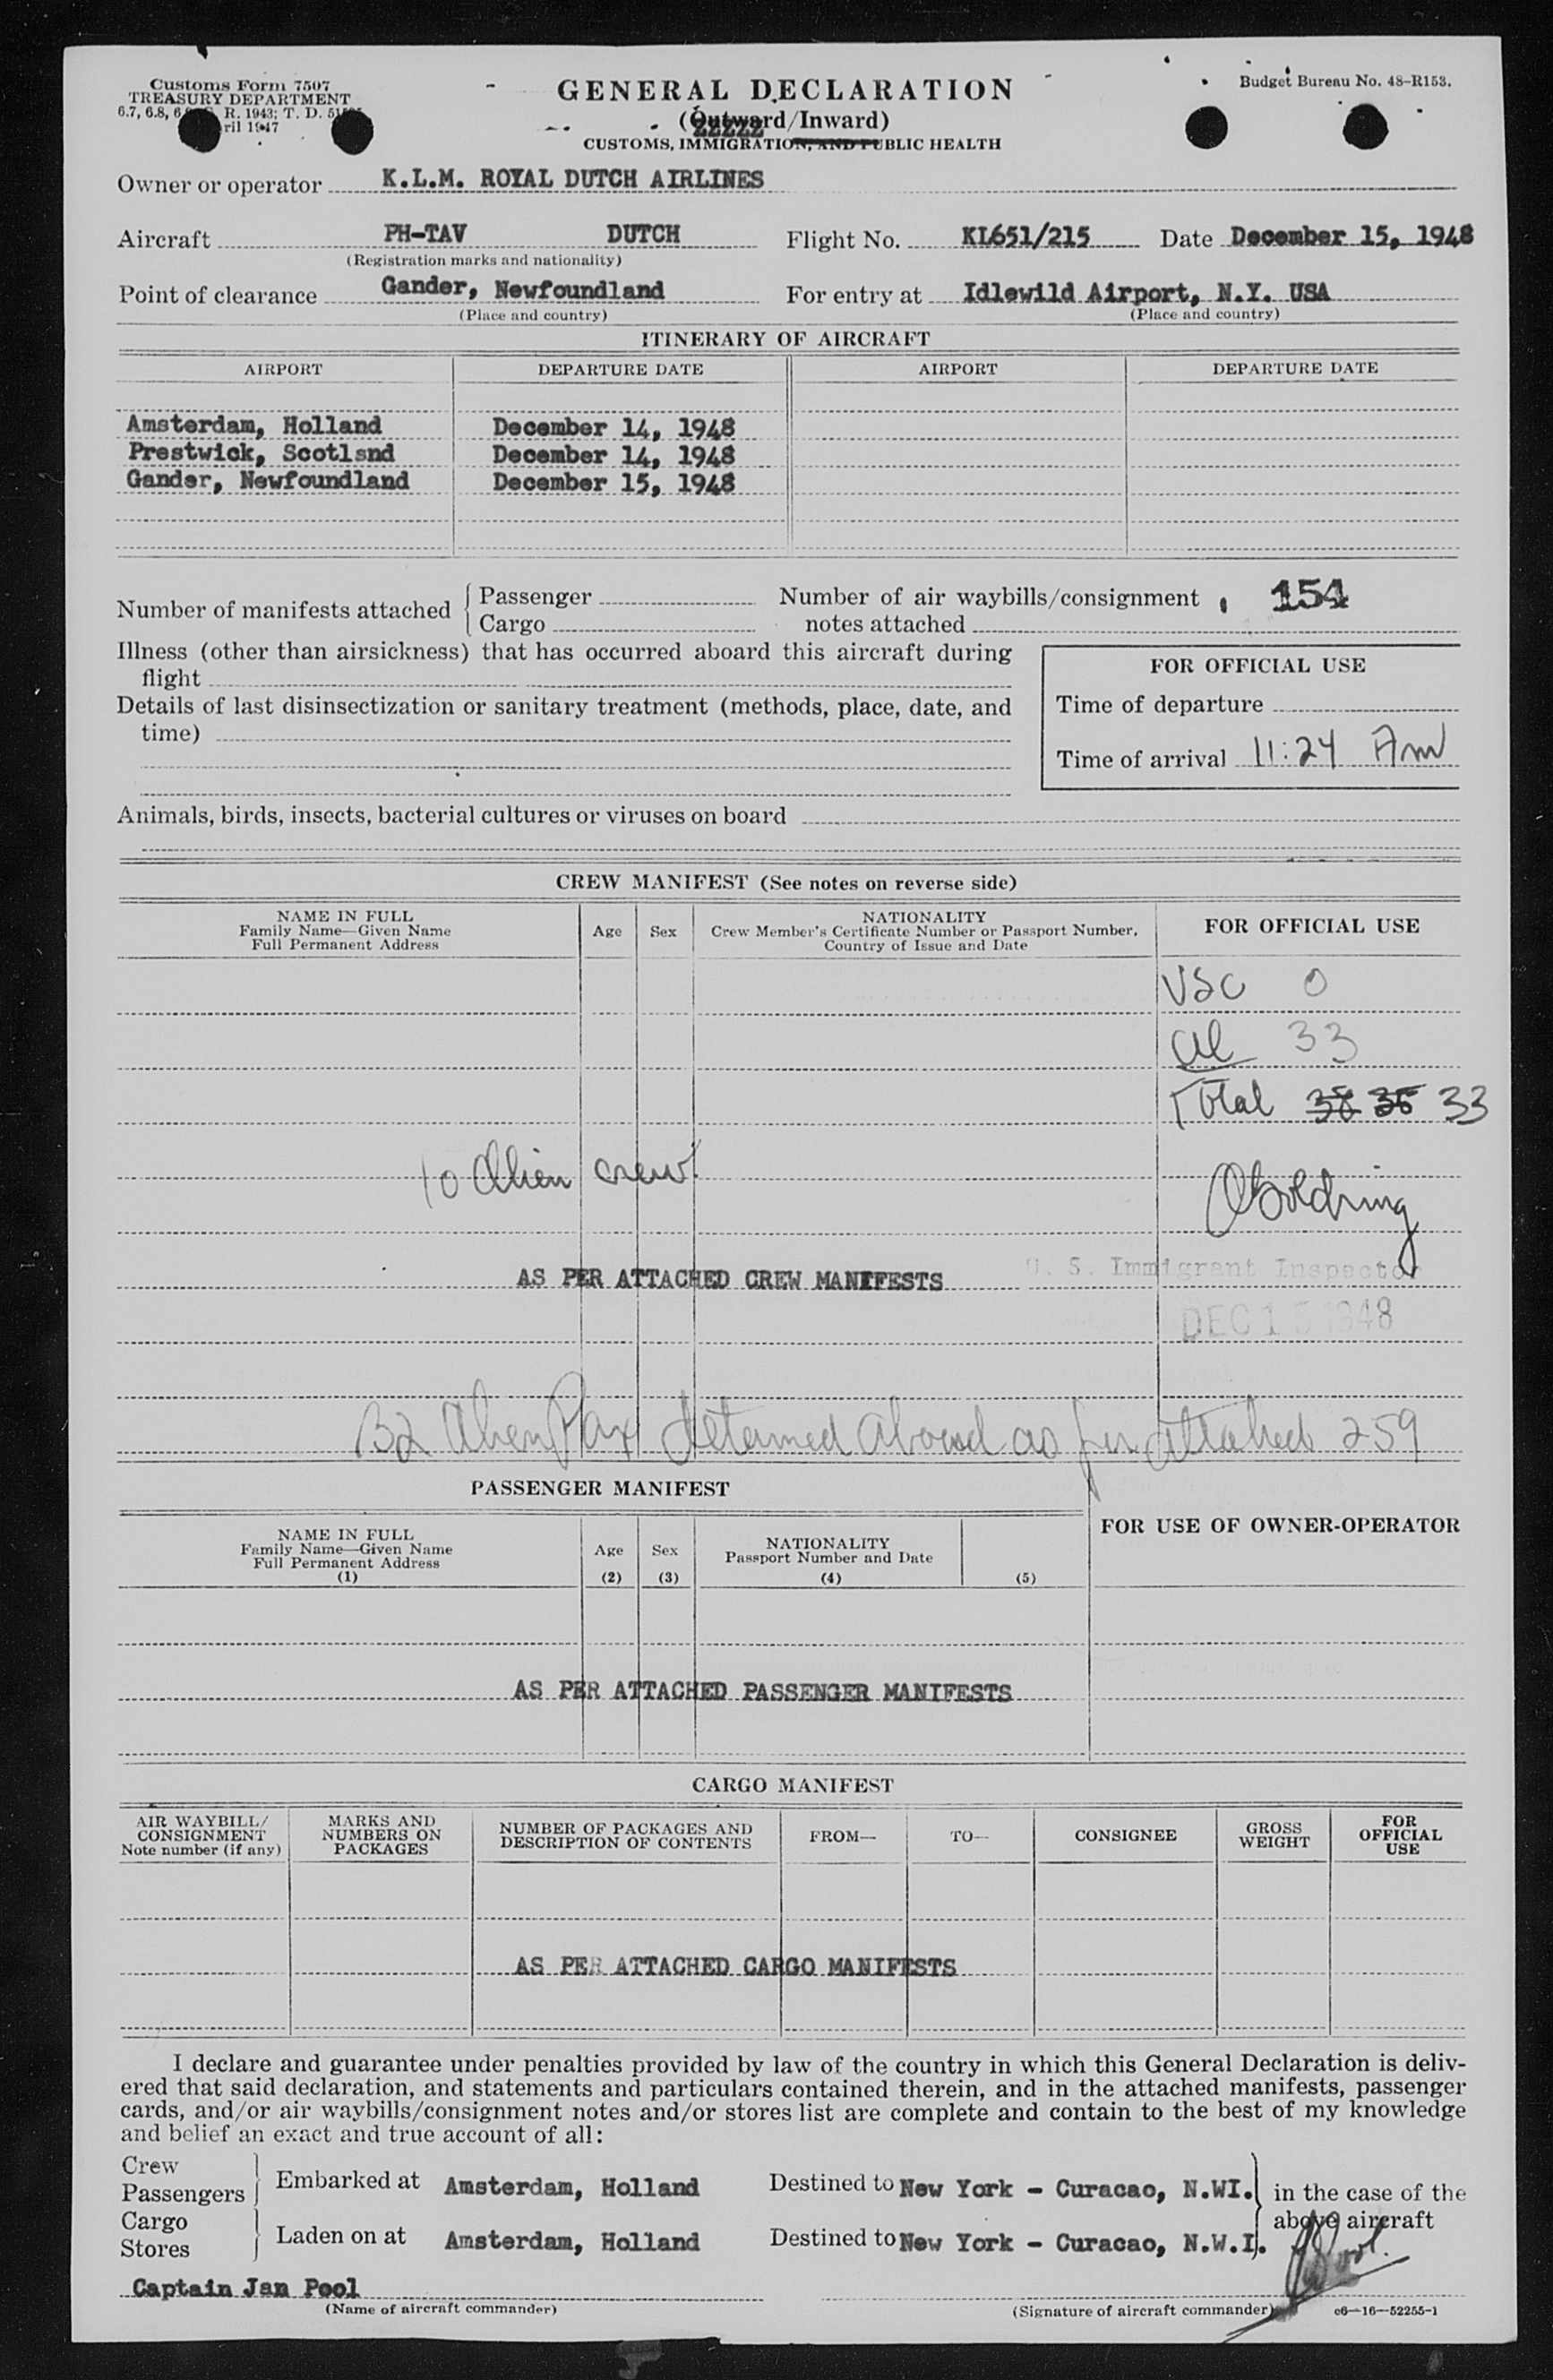 Customs Form 7507
TREASURY DEPARTMENT
6.7, 6.8, R. 1943; T. D.
1947
GENERAL DECLARATION
(Outward/Inward)
CUSTOMS, IMMIGRATION, AND PUBLIC HEALTH
Budget Bureau No. 48-R153.
Owner or operator K.L.M. ROYAL DUTCH AIRLINES
Aircraft PH-TAV DUTCH Flight No. KL651/215 Date December 15, 1948
(Registration marks and nationality)
Point of clearance Gander, Newfoundland For entry at Idlewild Airport, N.Y. USA
(Place and country) (Place and country)
ITINERARY OF AIRCRAFT
AIRPORT DEPARTURE DATE AIRPORT DEPARTURE DATE
Amsterdam, Holland December 14, 1948
Prestwick, Scotlsnd December 14, 1948
Gander, Newfoundland December 15, 1948
Number of manifests attached { Passenger
Cargo
Number of air waybills/consignment
notes attached
154
Illness (other than airsickness) that has occurred aboard this aircraft during
flight
Details of last disinsectization or sanitary treatment (methods, place, date, and
time)
FOR OFFICIAL USE
Time of departure
Time of arrival 11:24 Am
Animals, birds, insects, bacterial cultures or viruses on board
CREW MANIFEST (See notes on reverse side)
NAME IN FULL
Family Name—Given Name
Full Permanent Address
Age
Sex
NATIONALITY
Crew Member's Certificate Number or Passport Number,
Country of Issue and Date
FOR OFFICIAL USE
USC 0
al 33
Total 38 35 33
10 Alien crew
Goldring
AS PER ATTACHED CREW MANIFESTS
U. S. Immigrant Inspector
DEC 15 1948
32 Alien Pax detained aboard as per attached 259
PASSENGER MANIFEST
FOR USE OF OWNER-OPERATOR
NAME IN FULL
Family Name—Given Name
Full Permanent Address
(1)
Age
(2)
Sex
(3)
NATIONALITY
Passport Number and Date
(4)
(5)
AS PER ATTACHED PASSENGER MANIFESTS
CARGO MANIFEST
AIR WAYBILL/
CONSIGNMENT
Note number (if any)
MARKS AND
NUMBERS ON
PACKAGES
NUMBER OF PACKAGES AND
DESCRIPTION OF CONTENTS
FROM—
TO—
CONSIGNEE
GROSS
WEIGHT
FOR
OFFICIAL
USE
AS PER ATTACHED CARGO MANIFESTS
I declare and guarantee under penalties provided by law of the country in which this General Declaration is deliv-
ered that said declaration, and statements and particulars contained therein, and in the attached manifests, passenger
cards, and/or air waybills/consignment notes and/or stores list are complete and contain to the best of my knowledge
and belief an exact and true account of all:
Crew
Passengers } Embarked at Amsterdam, Holland Destined to New York - Curacao, N.WI.
Cargo
Stores } Laden on at Amsterdam, Holland Destined to New York - Curacao, N.W.I.
in the case of the
above aircraft
Captain Jan Pool
(Name of aircraft commander)
(Signature of aircraft commander)
c6—16—52255-1